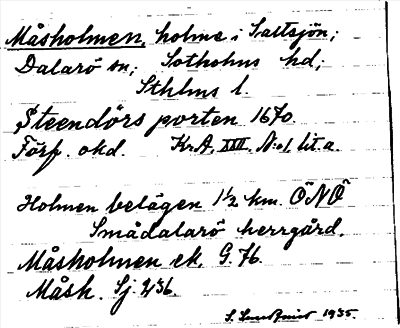 Måsholmen, holme i Saltsjön;
Dalarö sn; Sotholms hd;
Sthlms l.
Steendörs porten 1670.
Förf. okd. Kr.A. XXIII. N:o1 lit.a.
Holmen belägen 1½ km. ÖNÖ
Smådalarö herrgård.
Måsholmen ek. G. 76.
Måsh. Sj. 236.
S. 1935.